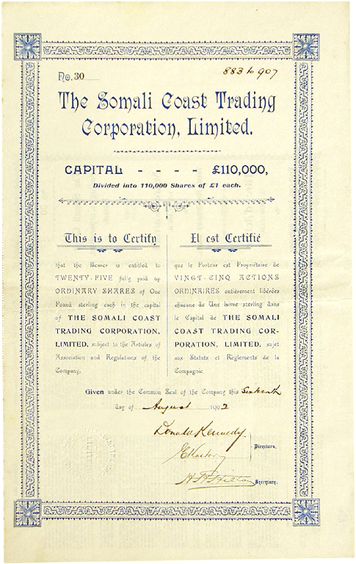 No. 30
883 to 907
The Somali Coast Trading
Corporation, Limited.
CAPITAL - - - - £110,000,
Divided into 110,000 Shares of £1 each.
This is to Certify
that the Bearer is entitled to
TWENTY-FIVE fully paid up
ORDINARY SHARES of One
Pound sterling each in the capital
of THE SOMALI COAST
TRADING CORPORATION,
LIMITED, subject to the Articles of
Association and Regulations of the
Company.
Il est Certifié
que le Porteur est Propriétaire de
VINGT-CINQ ACTIONS
ORDINAIRES entièrement libérées
chacune de Une livre sterling dans
le Capital de THE SOMALI
COAST TRADING COR-
PORATION, LIMITED, sujet
aux Statuts et Règlements de la
Compagnie.
Given under the Common Seal of the Company this Sixteenth
day of August 1902
Donald Kennedy
Directors.
Secretary.